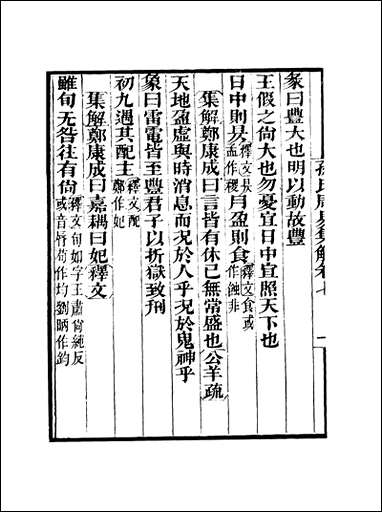 孫氏周易集解卷七
彖曰豐大也明以動故豐
王假之尚大也勿憂宜日中宜照天下也
日中則昃釋文昃孟作稷月盈則食釋文食或作蝕非
集解鄭康成曰言皆有休已無常盛也公羊疏
天地盈虛與時消息而况於人乎况於鬼神乎
象曰雷電皆至豐君子以折獄致刑
初九遇其配主釋文配鄭作妃
集解鄭康成曰嘉耦曰妃釋文
雖旬无咎往有尚釋文旬如字王肅尙純反或音脣荀作均劉昞作鈞